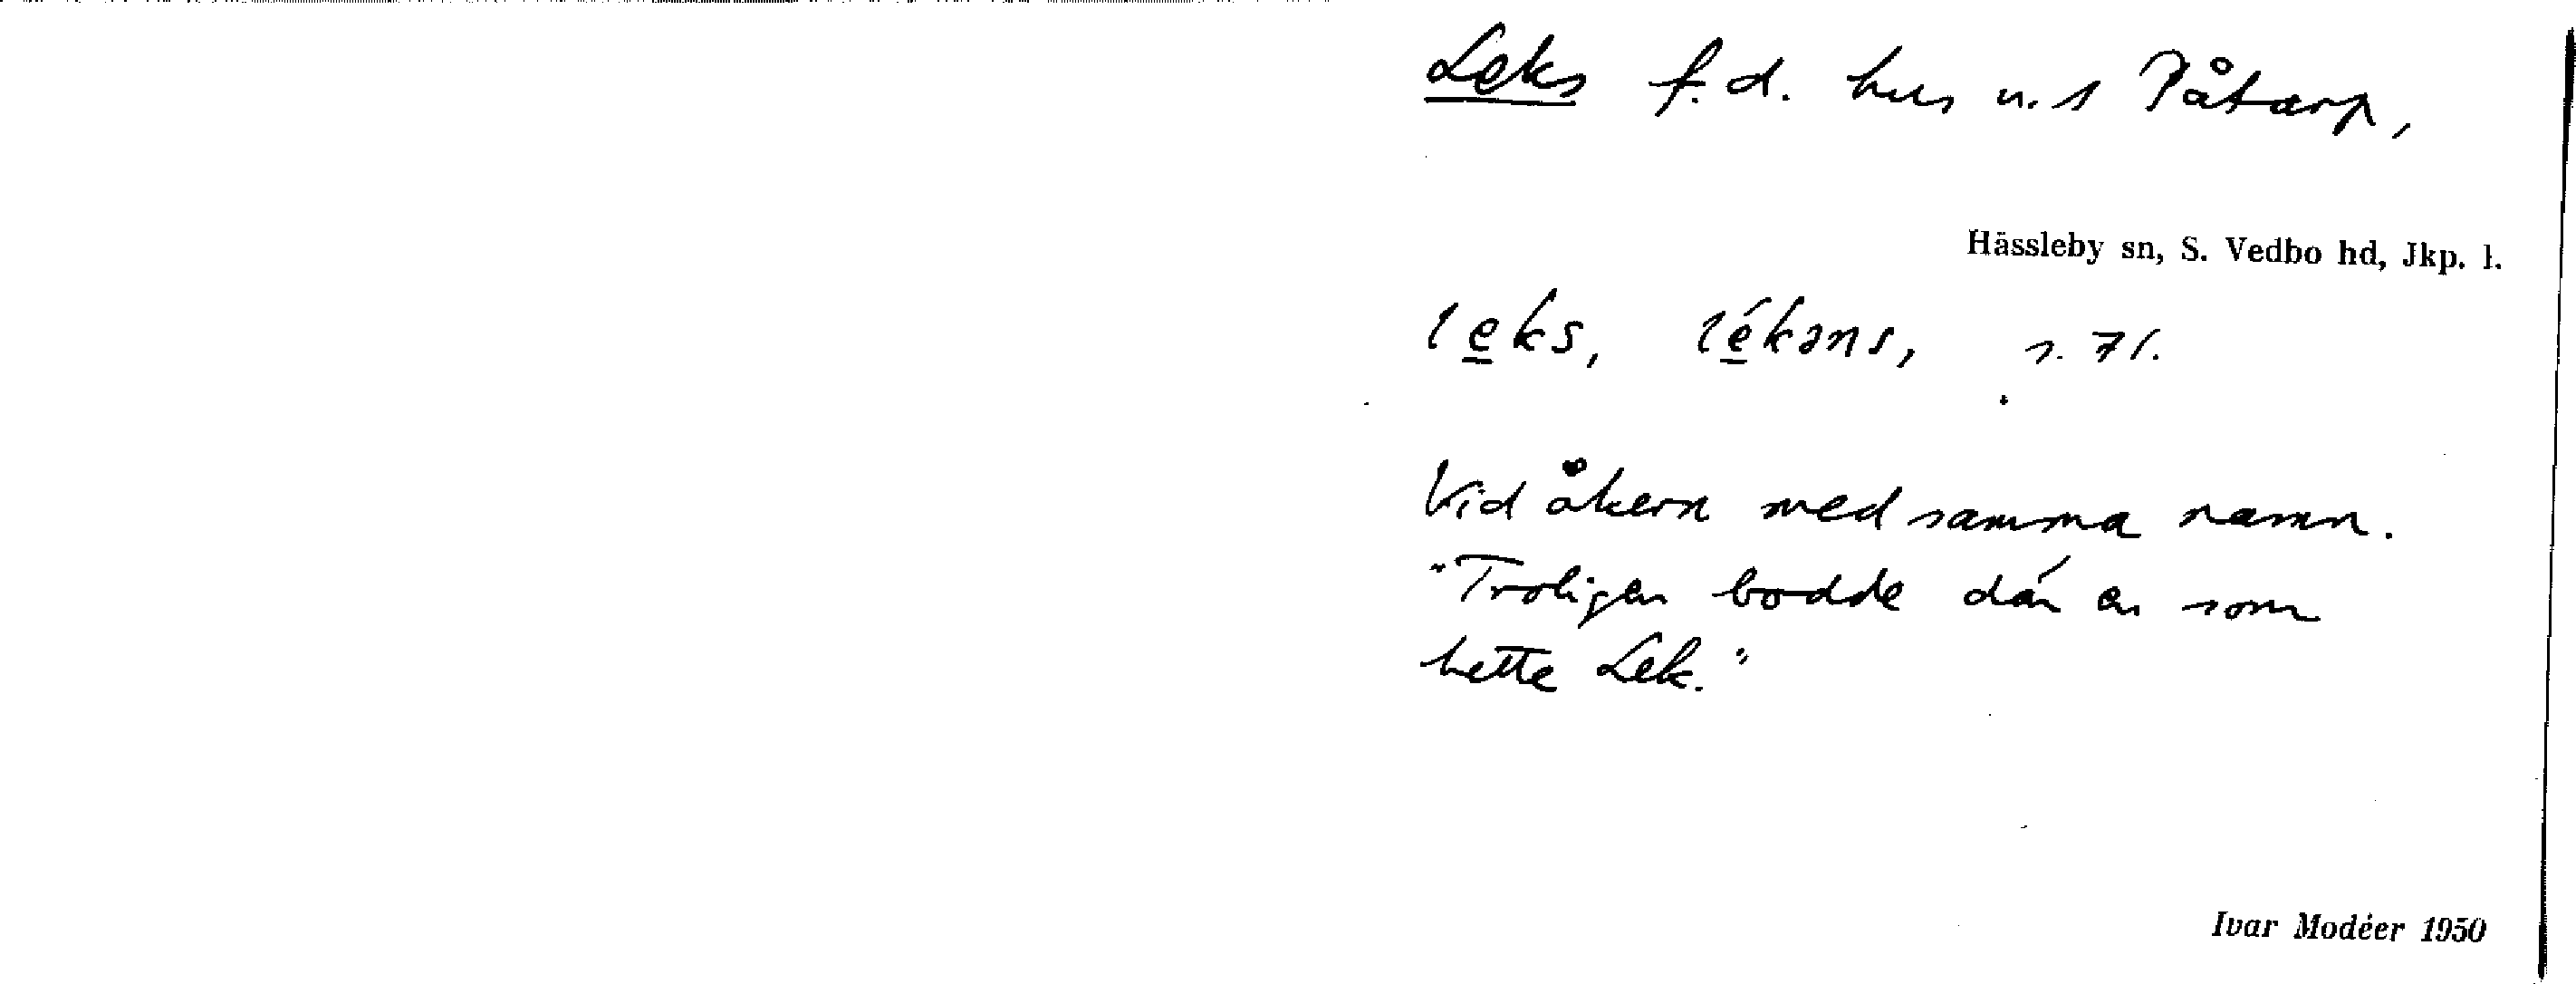 Leks f.d. hus u. 1 Påtarp,
Hässleby sn, S. Vedbo hd, Jkp. l.
leks, lékəns, s. 71.
Vid åkern med samma namn.
"Troligen bodde där en som
hette Lek."
Ivar Modéer 1950